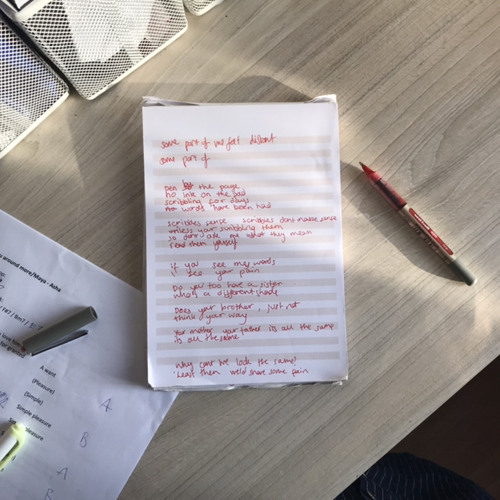 some part of me felt distant
some part of
Pen the page
no ink on the pad
scribbling for days
words have been had
scribbles sense scribbles dont make sense
unless your scribbling them
so dont ask me what they mean
read them yourself
if you see my words
I see your pain
Do you too have a sister
whos a different shade
Does your brother, just not
think your way
Your mother your father its all the same
its all the same
Why cant we look the same?
'Least then we'd share some pain
s around more/Maya - Asha
A want
(Pleasure)
(Simple)
Simple pleasure
pleasure
A
B
A
B